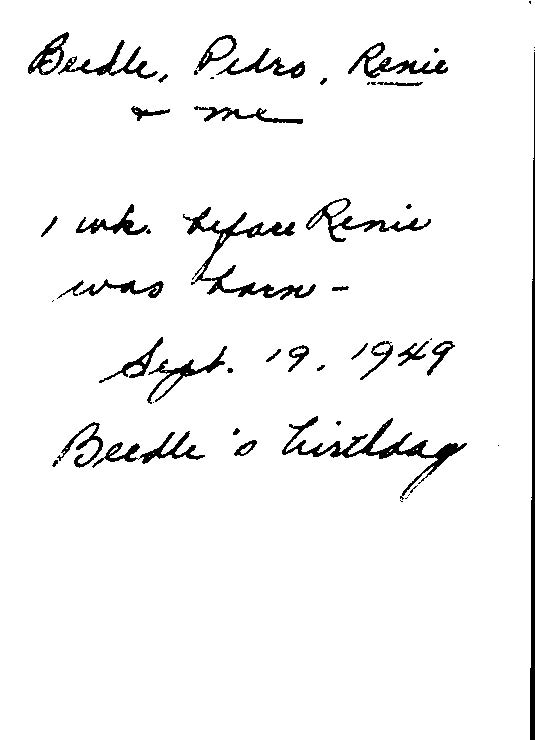 Beedle, Pedro, Renie
& me
1 wk. before Renie
was born -
Sept. 19, 1949
Beedle's birthday